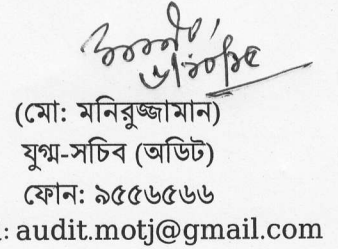 (মো: মনিরুজ্জামান)
যুগ্ম-সচিব (অডিট)
ফোন: ৯৫৫৬৫৬৬
: audit.motj@gmail.com